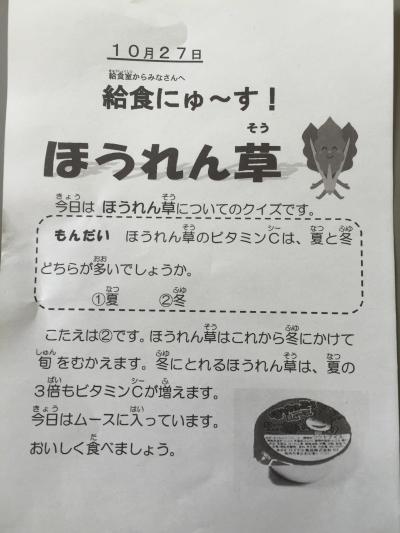 １０月２７日
給食室からみなさんへ
給食にゅ～す！
ほうれん草
今日は ほうれん草についてのクイズです。
もんだい ほうれん草のビタミンCは、夏と冬
どちらが多いでしょうか。
①夏 ②冬
こたえは②です。ほうれん草はこれから冬にかけて
旬をむかえます。冬にとれるほうれん草は、夏の
３倍もビタミンCが増えます。
今日はムースに入っています。
おいしく食べましょう。